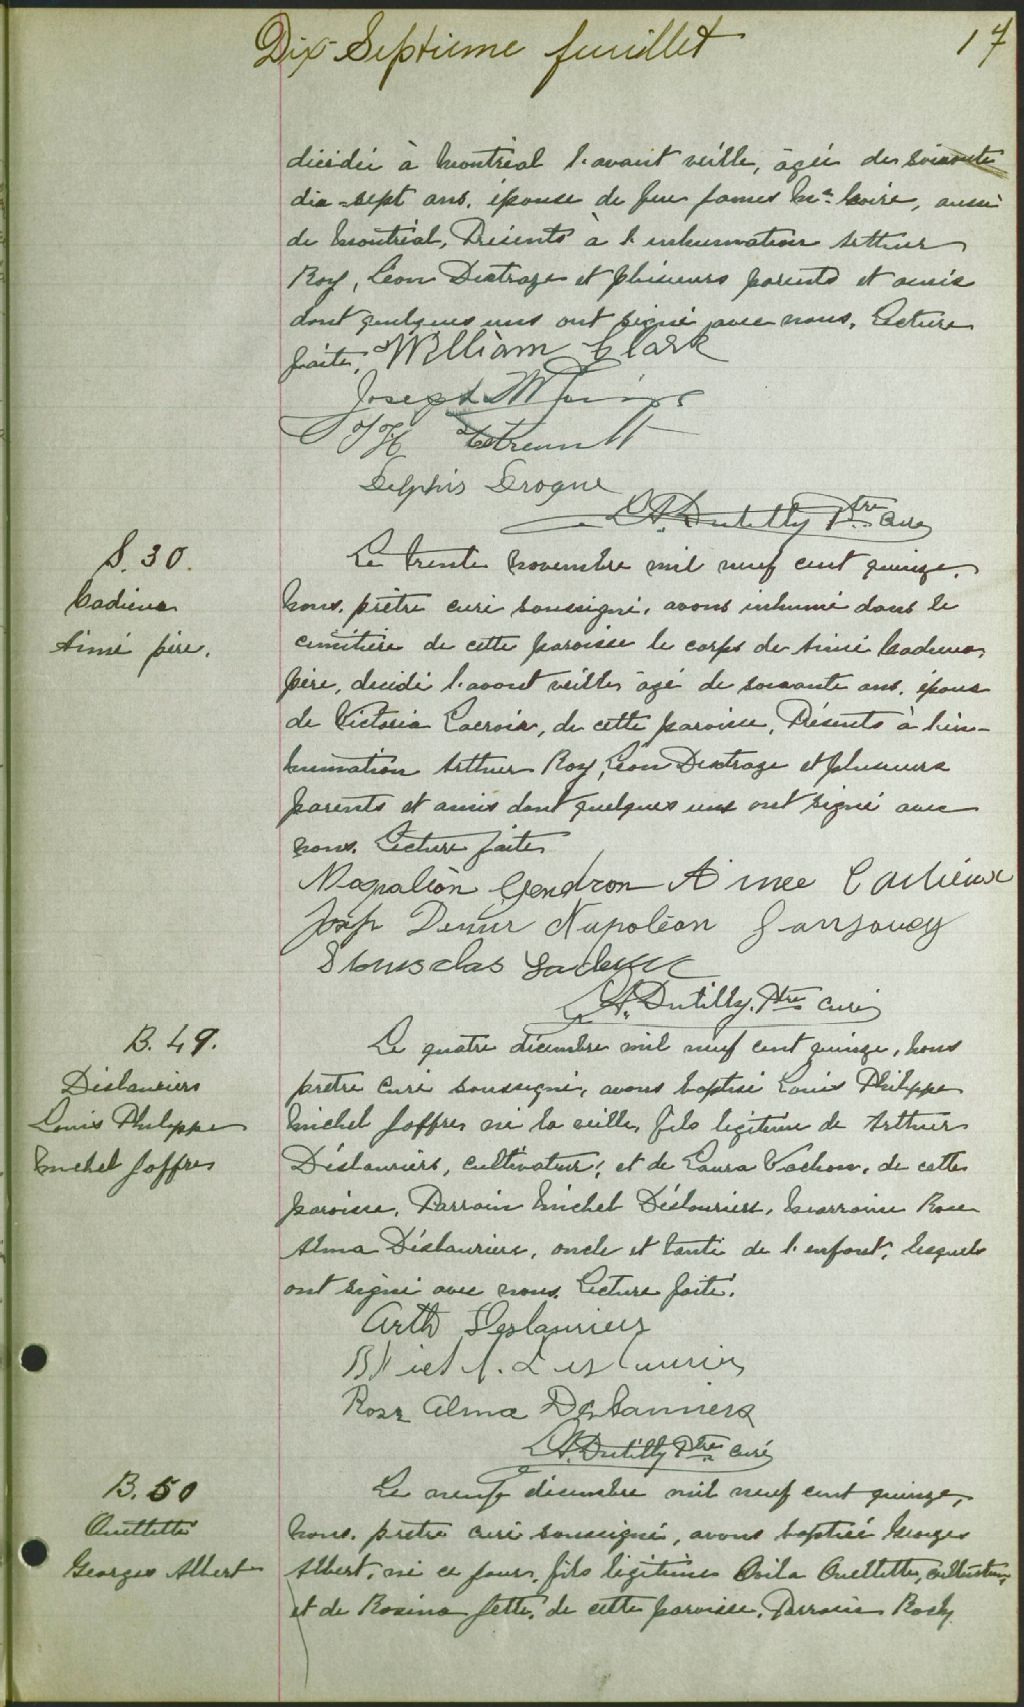 Dix-Septième feuillet 17
décédée à Montréal l'avant veille, âgée de soixante
dix-sept ans, épouse de feu James Mc aussi
de Montréal. Présents à l'inhumation Arthur
Roy, Léon Destroze et plusieurs parents et amis
dont quelques uns ont signé avec nous. Lecture
faite. William Clark
Joseph
Tétreault
Delphis Drogue
L.A. Dutilly Ptre curé
S. 30.
Cadieux
Aimé père.
Le trente novembre mil neuf cent quinze,
Nous, prêtre curé soussigné, avons inhumé dans le
cimitière de cette paroisse le corps de Aimé Cadieux
père, décédé l'avant veille, âgé de soixante ans, époux
de Victoria Lacroix, de cette paroisse. Présents à l'in-
humation Arthur Roy, Léon Destroze et plusieurs
parents et amis dont quelques uns ont signé avec
nous. Lecture faite
Napoléon Gendron Aimee Cadieux
Josep Napoléon Sansoucy
Stanislas
L.A. Dutilly. Ptre curé
B. 49.
Déslauriers
Louis Philippe
Michel Joffre
Le quatre décembre mil neuf cent quinze, Nous
prêtre curé soussigné, avons baptisé Louis Philippe
Michel Joffre né la veille, fils légitime de Arthur
Déslauriers, cultivateur, et de Laura Vachon, de cette
paroisse. Parrain Michel Déslauriers, Marraine Rose
Alma Déslauriers, oncle et tante de l'enfant, lesquels
ont signé avec nous. Lecture faite.
Arth Deslauriers
Deslauriers
Rose Alma Deslauriers
L.A. Dutilly Ptre curé
B. 50
Ouellette
Georges Albert
Le neuf décembre mil neuf cent quinze,
Nous, prêtre curé soussigné, avons baptisé Georges
Albert, né ce jour, fils légitime Ovila Ouellette, cultivateur,
et de Rosina Jetté, de cette paroisse. Parrain